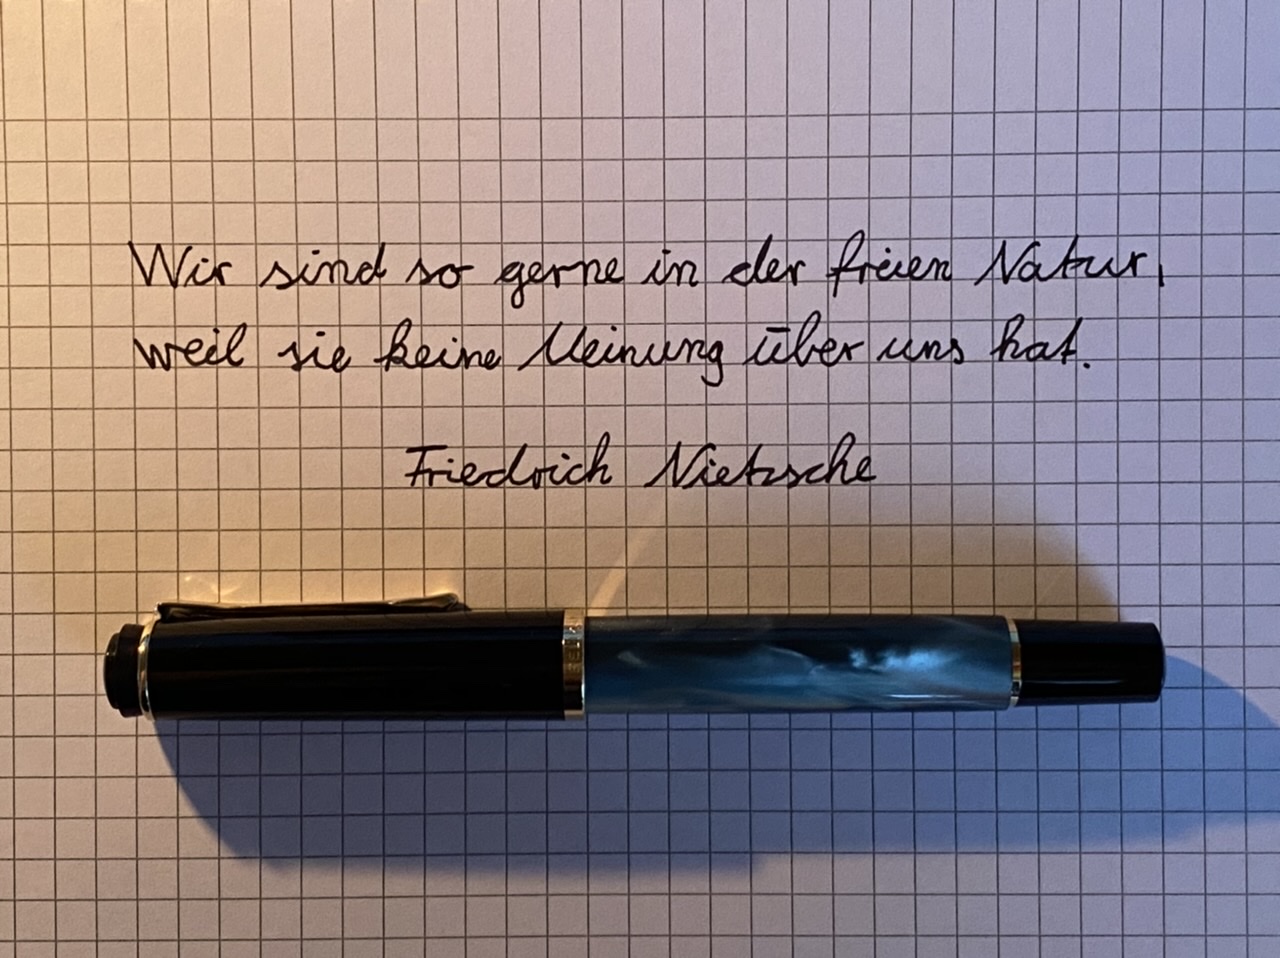 Wir sind so gerne in der freien Natur,
weil sie keine Meinung über uns hat.
Friedrich Nietzsche